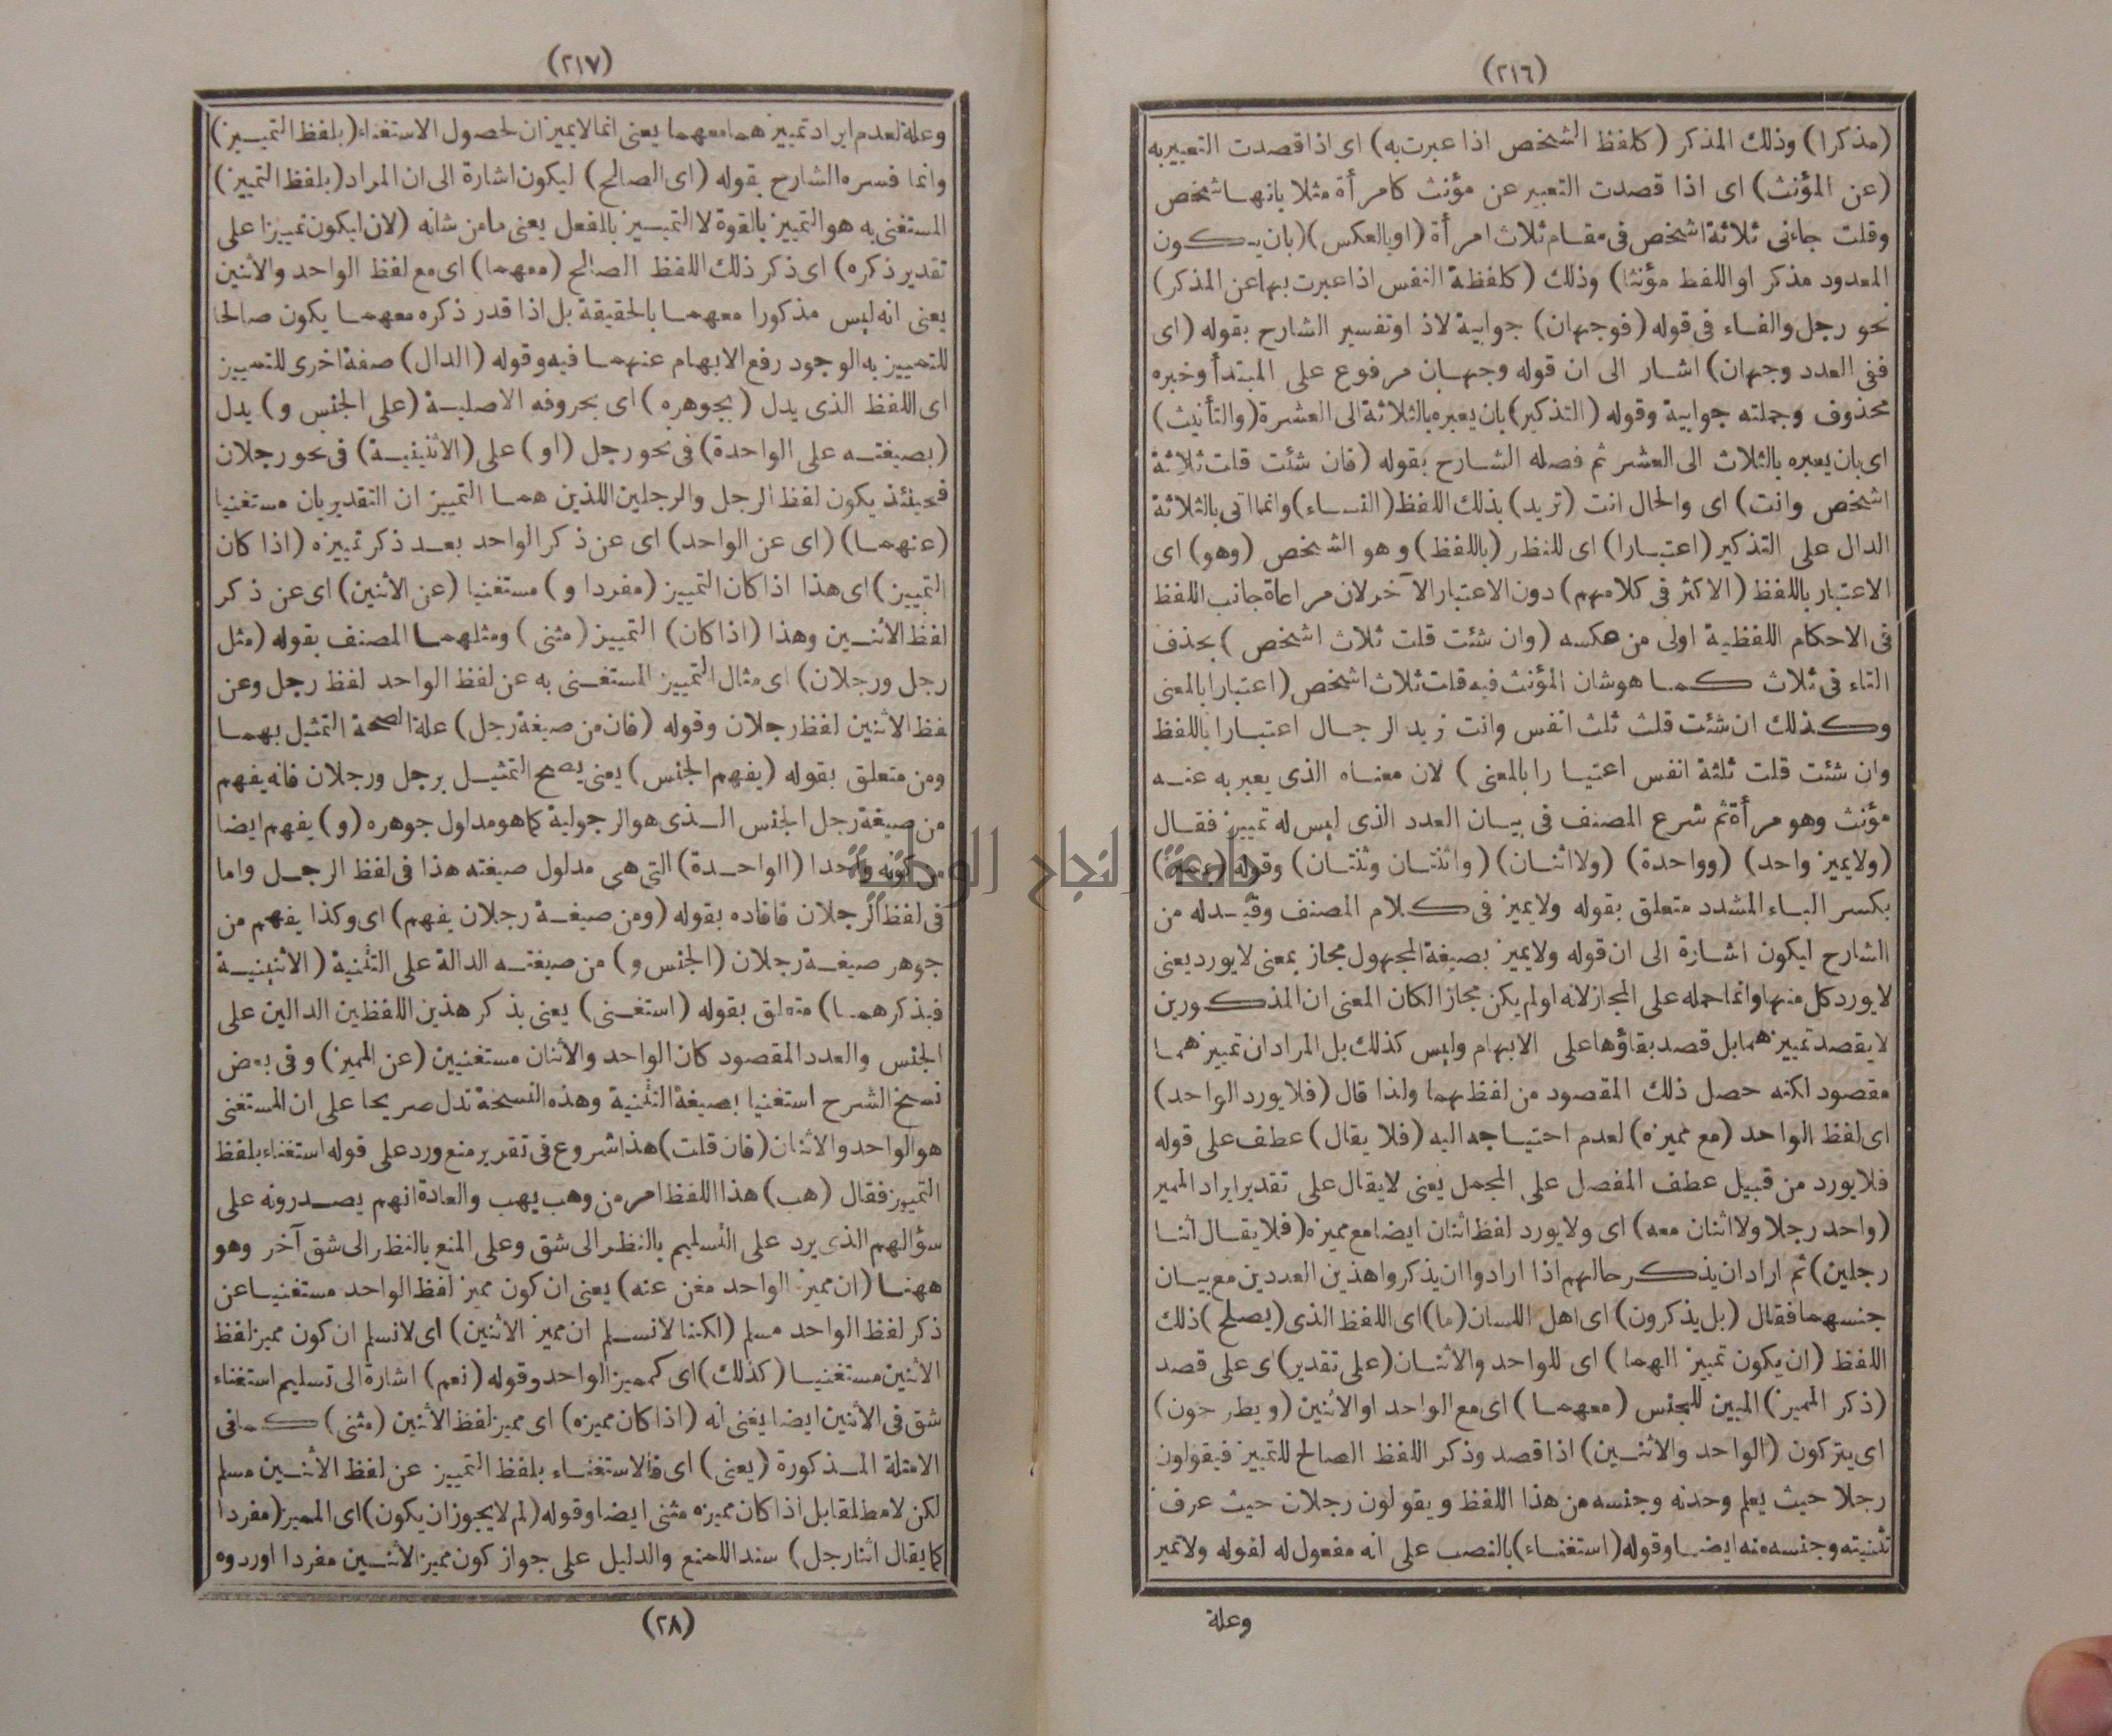 (٢١٦)
(مذكرا) وذلك المذكر (كلفظ الشخص اذا عبرت به) اى اذا قصدت التعبير به
(عن المؤنث) اى اذا قصدت التعبير عن مؤنث كامرأة مثلا بانها شخص
وقلت جاءنى ثلاثة اشخص فى مقام ثلاث امرأة (او بالعكس) (بان يكون
المعدود مذكر او اللفظ مؤنثا) وذلك (كلفظة النفس اذا عبرت بها عن المذكر)
نحو رجل والفاء فى قوله (فوجهان) جوابية لاذا وتفسير الشارح بقوله (اى
ففى العدد وجهان) اشار الى ان قوله وجهان مرفوع على المبتدأ وخبره
محذوف وجملته جوابية وقوله (التذكير) بان يعبره بالثلاثة الى العشرة (والتأنيث)
اى بان يعبره بالثلاث الى العشر ثم فصله الشارح بقوله (فان شئت قلت ثلاثة
اشخص وانت) اى والحال انت (تريد) بذلك اللفظ (النساء) وانما اتى بالثلاثة
الدال على التذكير (اعتبارا) اى للنظر (باللفظ) وهو الشخص (وهو) اى
الاعتبار باللفظ (الاكثر فى كلامهم) دون الاعتبار الآخر لان مراعاة جانب اللفظ
فى الاحكام اللفظية اولى من عكسه (وان شئت قلت ثلاث اشخص) بحذف
التاء فى ثلاث كما هو شان المؤنث فيه قلت ثلاث اشخص (اعتبارا بالمعنى
وكذلك ان شئت قلت ثلث انفس وانت تريد الرجال اعتبارا باللفظ
وان شئت قلت ثلثة انفس اعتبارا بالمعنى) لان معناه الذى يعبر به عنه
مؤنث وهو مرأة ثم شرع المصنف فى بيان العدد الذى ليس له تمييز فقال
(ولا يميز واحد) (وواحدة) (ولا اثنان) (واثنتان وثنتان) وقوله (بمميز)
بكسر الياء المشدد متعلق بقوله ولا يميز فى كلام المصنف وقيد له من
الشارح ليكون اشارة الى ان قوله ولا يميز بصيغة المجهول مجاز بمعنى لا يورد يعنى
لا يورد كل منها وانما حمله على المجاز لانه او لم يكن مجازا لكان المعنى ان المذكورين
لا يقصد تمييزهما بل قصد بقاؤها على الابهام وليس كذلك بل المراد ان تمييزهما
مقصود لكنه حصل ذلك المقصود من لفظهما ولذا قال (فلا يورد الواحد)
اى لفظ الواحد (مع مميزه) لعدم احتياجه اليه (فلا يقال) عطف على قوله
فلا يورد من قبيل عطف المفصل على المجمل يعنى لا يقال على تقدير ايراد المميز
(واحد رجلا ولا اثنان معه) اى ولا يورد لفظ اثنان ايضا مع مميزه (فلا يقال اثنا
رجلين) ثم اراد ان يذكر حالهم اذا ارادوا ان يذكروا هذين العددين مع بيان
جنسهما فقال (بل يذكرون) اى اهل اللسان (ما) اى اللفظ الذى (يصلح) ذلك
اللفظ (ان يكون تمييزا لهما) اى للواحد والاثنان (على تقدير) اى على قصد
(ذكر المميز) المبين للجنس (معهما) اى مع الواحد او الاثنين (ويطرحون)
اى يتركون (الواحد والاثنين) اذا قصد وذكر اللفظ الصالح للتمييز فيقولون
رجلا حيث يعلم وحدته وجنسه من هذا اللفظ ويقولون رجلان حيث عرف
تثنيته وجنسه منه ايضا وقوله (استغناء) بالنصب على انه مفعول له لقوله ولا تميز
وعلة
(٢١٧)
وعلة لعدم ايراد تمييزهما معهما يعنى انما لا يميزان لحصول الاستغناء (بلفظ التمييز)
وانما فسره الشارح بقوله (اى الصالح) ليكون اشارة الى ان المراد (بلفظ التمييز)
المستغنى به هو التمييز بالقوة لا التمييز بالفعل يعنى ما من شانه (لان ليكون تمييزا على
تقدير ذكره) اى ذكر ذلك اللفظ الصالح (معهما) اى مع لفظ الواحد والاثنين
يعنى انه ليس مذكورا معهما بالحقيقة بل اذا قدر ذكره معهما يكون صالحا
للتمييز به الوجود رفع الابهام عنهما فيه وقوله (الدال) صفة اخرى للتمييز
اى اللفظ الذى يدل (بجوهره) اى بحروفه الاصلية (على الجنس و) يدل
(بصيغته على الواحدة) فى نحو رجل (او) على (الاثنينية) فى نحو رجلان
فحينئذ يكون لفظ الرجل والرجلين اللذين هما التمييزان التقديريان مستغنيا
(عنهما) (اى عن الواحد) اى عن ذكر الواحد بعد ذكر تمييزه (اذا كان
التمييز) اى هذا اذا كان التمييز (مفردا و) مستغنيا (عن الاثنين) اى عن ذكر
لفظ الاثنين وهذا (اذا كان) التمييز (مثنى) ومثلهما المصنف بقوله (مثل
رجل ورجلان) اى مثال التمييز المستغنى به عن لفظ الواحد لفظ رجل وعن
لفظ الاثنين لفظ رجلان وقوله (فان من صيغة رجل) علة لصحة التمثيل بهما
ومن متعلق بقوله (يفهم الجنس) يعنى يصح التمثيل برجل ورجلان فانه يفهم
من صيغة رجل الجنس الذى هو الرجولية كما هو مداول جوهره (و) يفهم ايضا
من كونه واحدا (الواحدة) التى هى مدلول صيغته هذا فى لفظ الرجل واما
فى لفظ الرجلان فافاده بقوله (ومن صيغة رجلان يفهم) اى وكذا يفهم من
جوهر صيغة رجلان (الجنس و) من صيغته الدالة على التثنية (الاثنينية
فبذكرهما) متعلق بقوله (استغنى) يعنى بذكر هذين اللفظين الدالين على
الجنس والعدد المقصود كان الواحد والاثنان مستغنيين (عن المميز) وفى بعض
نسخ الشرح استغنيا بصيغة التثنية وهذه النسخة تدل صريحا على ان المستغنى
هو الواحد والاثنان (فان قلت) هذا شروع فى تقرير منع ورد على قوله استغناء بلفظ
التمييز فقال (هب) هذا اللفظ امر من وهب يهب والعادة انهم يصدرونه على
سؤالهم الذى يرد على التسليم بالنظر الى شق وعلى المنع بالنظر الى شق آخر وهو
ههنا (ان مميز الواحد مغن عنه) يعنى ان كون مميز لفظ الواحد مستغنيا عن
ذكر لفظ الواحد مسلم (لكننا لا نسلم ان مميز الاثنين) اى لا نسلم ان كون مميز لفظ
الاثنين مستغنيا (كذلك) اى كمميز الواحد وقوله (نعم) اشارة الى تسليم استغناء
شق فى الاثنين ايضا يعنى انه (اذا كان مميزه) اى مميز لفظ الاثنين (مثنى) كما فى
الامثلة المذكورة (يعنى) اى فالاستغناء بلفظ التمييز عن لفظ الاثنين مسلم
لكن لا مطلقا بل اذا كان مميزه مثنى ايضا وقوله (لم لا يجوز ان يكون) اى المميز (مفردا
كما يقال اثنا رجل) سند للمنع والدليل على جواز كون مميز الاثنين مفردا اوردوه
(٢٨)
جامعة النجاح الوطنية